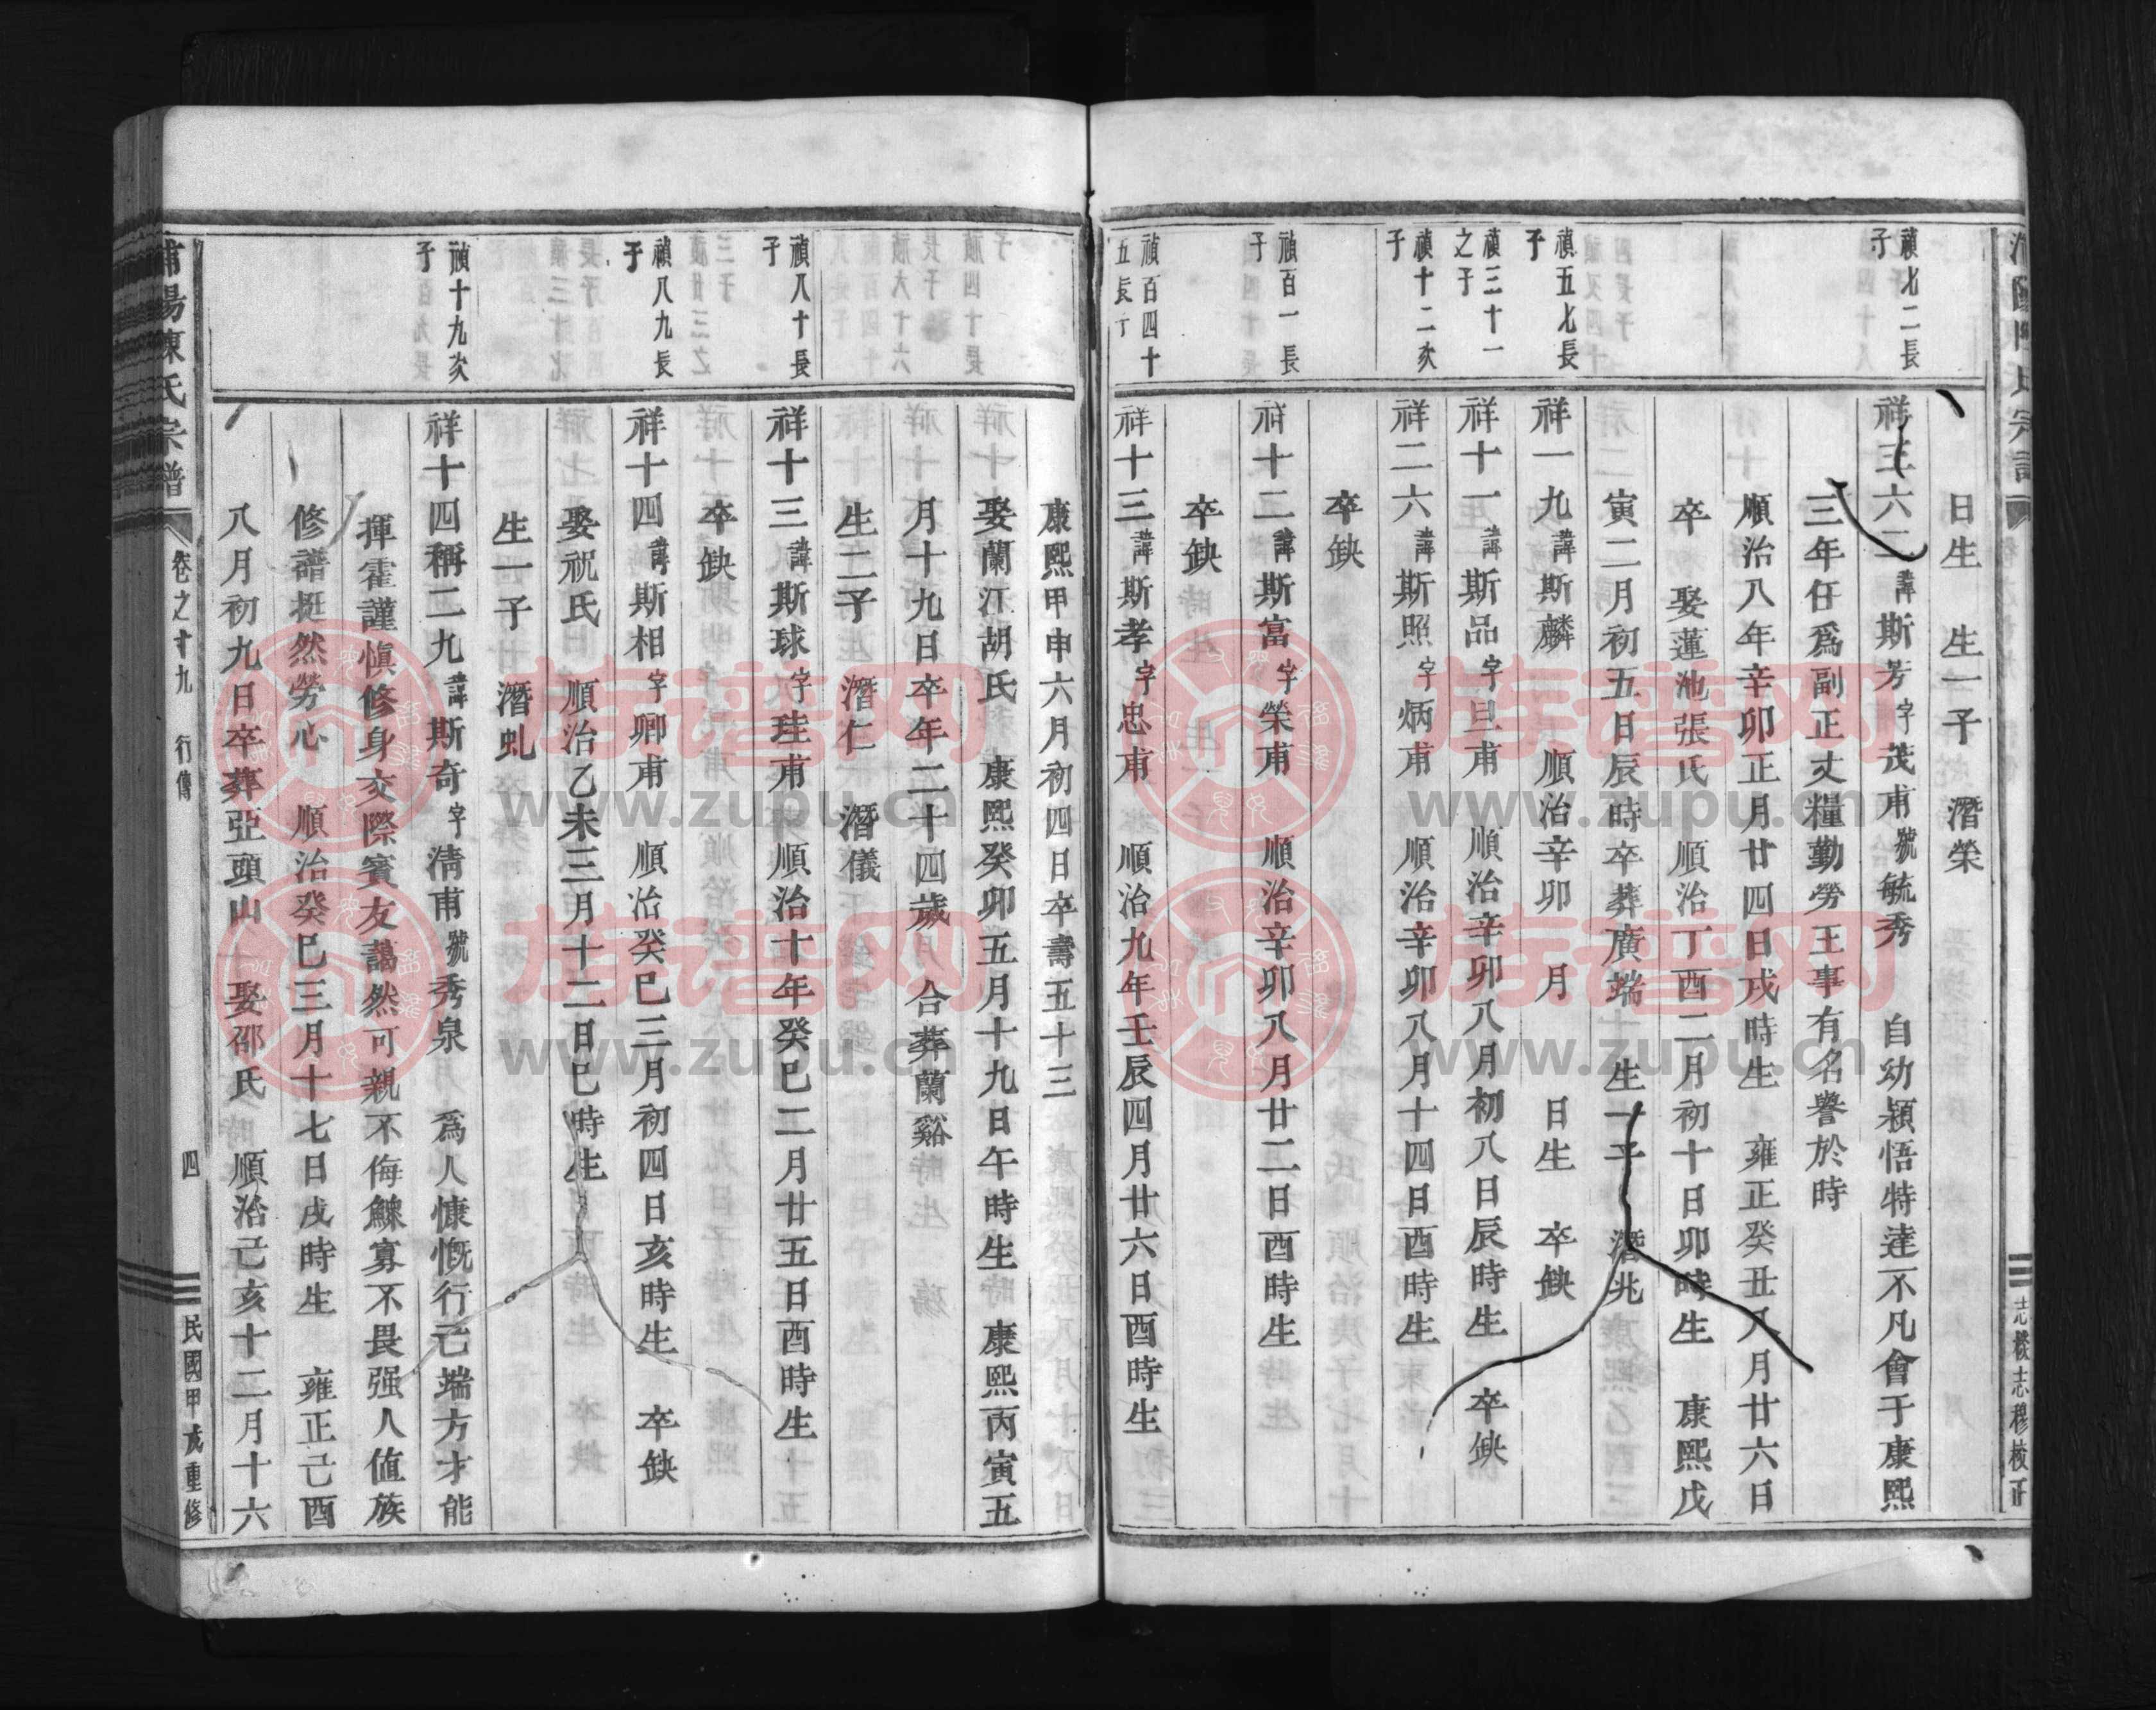 日生　生一子　潛榮
禎七二長子
祥三六二諱斯芳字茂甫號毓秀　自幼穎悟特達不凡會于康熙
三年任爲副正丈糧勤勞王事有名譽於時
順治八年辛卯正月廿四日戌時生　雍正癸丑八月廿六日
卒　娶蓮池張氏　順治丁酉二月初十日卯時生　康熙戊
寅二月初五日辰時卒葬廣端　生一子　潛兆
禎五七長子
祥一九諱斯麟　順治辛卯　月　日生　卒缺
禎三十一之子
祥十一諱斯品字旦甫　順治辛卯八月初八日辰時生　卒缺
禎十二次子
祥二六諱斯照字炳甫　順治辛卯八月十四日酉時生
卒缺
禎百一長子
祥十二諱斯富字榮甫　順治辛卯八月廿二日酉時生
卒缺
禎百四十五長子
祥十三諱斯孝字忠甫　順治九年壬辰四月廿六日酉時生
康熙甲申六月初四日卒壽五十三
娶蘭江胡氏　康熙癸卯五月十九日午時生　康熙丙寅五
月十九日卒年二十四歲　合葬蘭谿
生二子　潛仁　潛儀
禎八十長子
祥十三諱斯球字珪甫　順治十年癸巳二月廿五日酉時生
卒缺
禎八九長子
祥十四諱斯相字卿甫　順治癸巳三月初四日亥時生　卒缺
娶祝氏　順治乙未三月十二日巳時生
生一子　潛虬
禎十九次子
祥十四稱二九諱斯奇字淸甫號秀泉　爲人慷慨行己端方才能
揮霍謹愼修身交際賓友藹然可親不侮鰥寡不畏强人值族
修譜挺然勞心　順治癸巳三月十七日戌時生　雍正己酉
八月初九日卒葬亞頭山　娶邵氏　順治己亥十二月十六
浦陽陳氏宗譜　卷之十九　行傳　四　民國甲戌重修
志機志穆校正
族谱网
www.zupu.cn
族谱网
www.zupu.cn
族谱网
www.zupu.cn
族谱网
www.zupu.cn